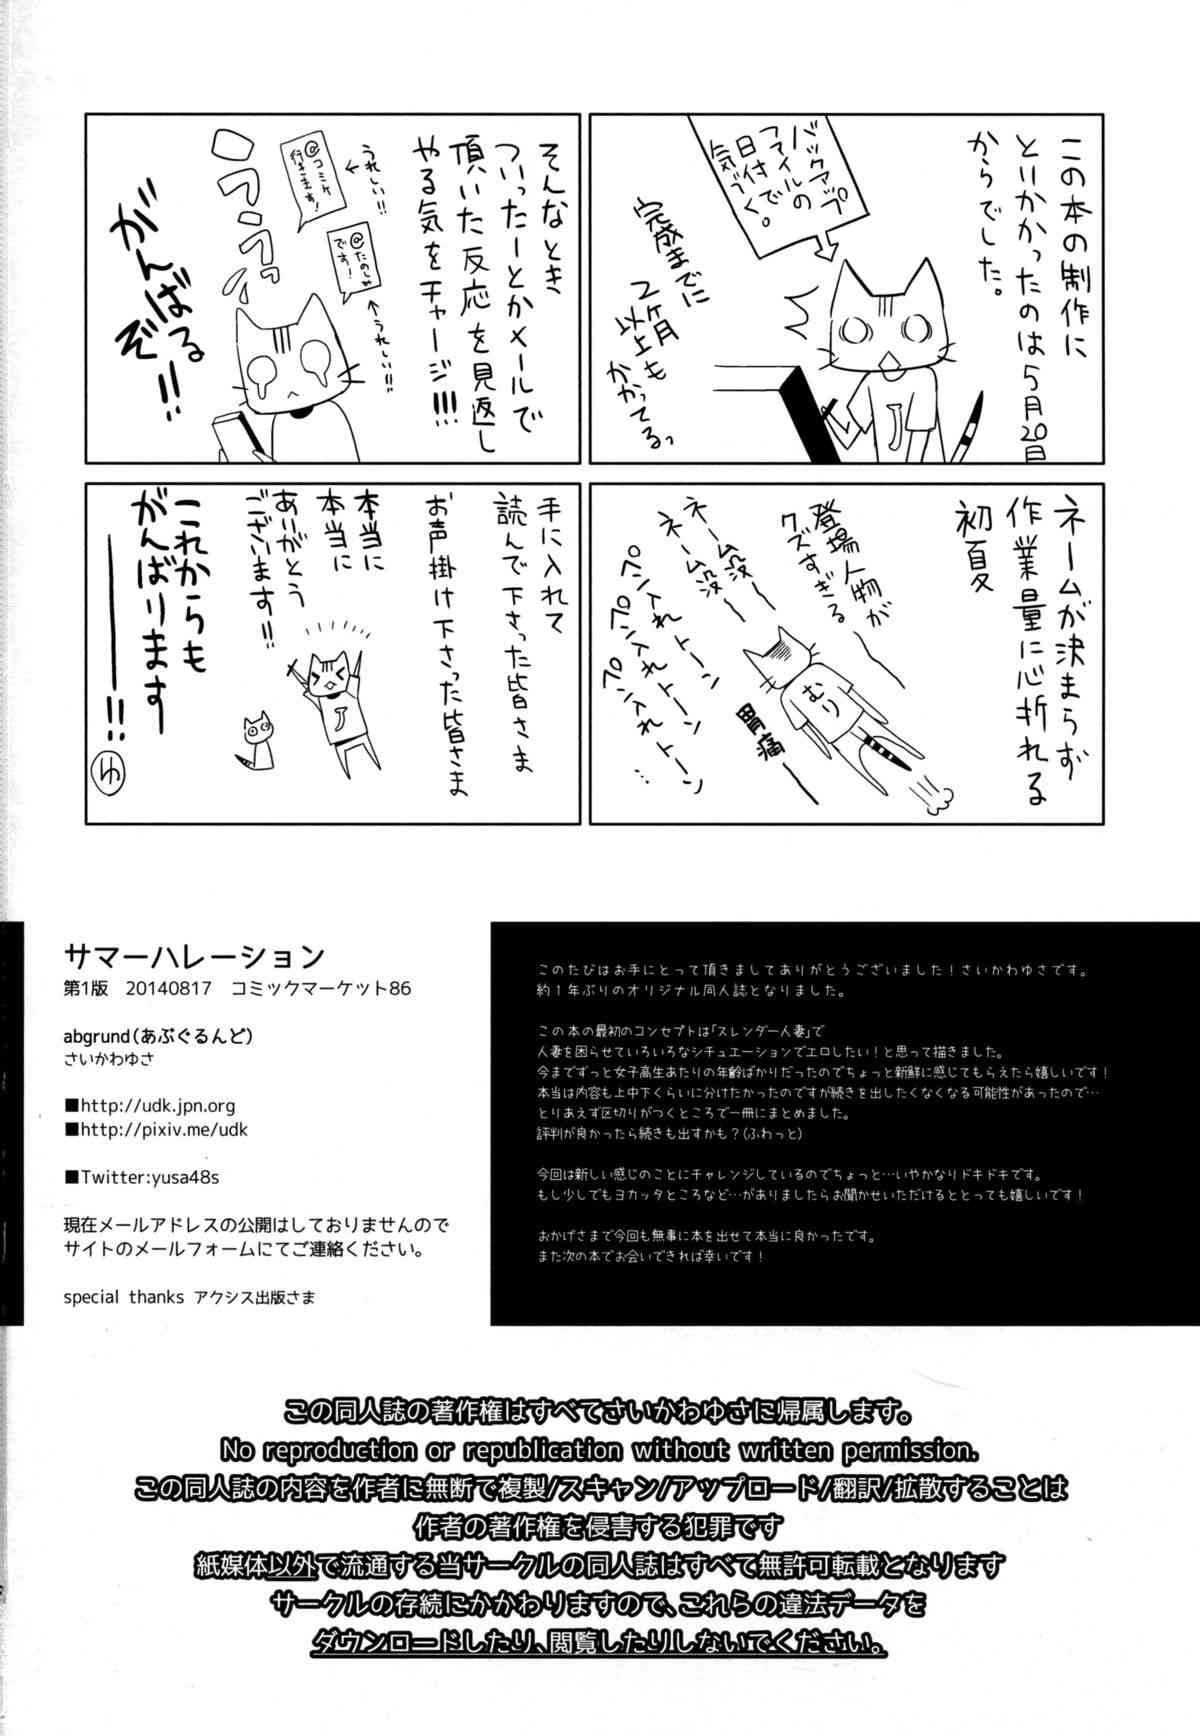 この本の制作に
とりかかったのは5月20日
からでした。
バックアップ
ファイルの
日付で
気づく。
完成までに
2ヶ月
以上も
かかってるっ
ネームが決まらず
作業量に心折れる
初夏
登場人物が
クズすぎる
ネーム没ー
ネーム没ー
ペン入れトーン
ペン入れトーン
ペン入れトーン…
むり
胃痛ー
そんなとき
ついったーとかメールで
頂いた反応を見返し
やる気をチャージ!!!
うれしい!!
@コミケ
行きます!
@たのしみ
です!
うれしい!!
がんばる
ぞ!!
手に入れて
読んで下さった皆さま
お声掛け下さった皆さま
本当に
本当に
ありがとう
ございます!!
これからも
がんばります
――!!
ゆ
サマーハレーション
第1版 20140817 コミックマーケット86
abgrund(あぶぐるんど)
さいかわゆさ
■http://udk.jpn.org
■http://pixiv.me/udk
■Twitter:yusa48s
現在メールアドレスの公開はしておりませんので
サイトのメールフォームにてご連絡ください。
special thanks アクシス出版さま
このたびはお手にとって頂きましてありがとうございました!さいかわゆさです。
約1年ぶりのオリジナル同人誌となりました。
この本の最初のコンセプトは「スレンダー人妻」で
人妻を困らせていろいろなシチュエーションでエロしたい!と思って描きました。
今までずっと女子高生あたりの年齢ばかりだったのでちょっと新鮮に感じてもらえたら嬉しいです!
本当は内容も上中下くらいに分けたかったのですが続きを出したくなくなる可能性があったので…
とりあえず区切りがつくところで一冊にまとめました。
評判が良かったら続きも出すかも?(ふわっと)
今回は新しい感じのことにチャレンジしているのでちょっと…いやかなりドキドキです。
もし少しでもヨカッタところなど…がありましたらお聞かせいただけるととっても嬉しいです!
おかげさまで今回も無事に本を出せて本当に良かったです。
また次の本でお会いできれば幸いです!
この同人誌の著作権はすべてさいかわゆさに帰属します。
No reproduction or republication without written permission.
この同人誌の内容を作者に無断で複製/スキャン/アップロード/翻訳/拡散することは
作者の著作権を侵害する犯罪です
紙媒体以外で流通する当サークルの同人誌はすべて無許可転載となります
サークルの存続にかかわりますので、これらの違法データを
ダウンロードしたり、閲覧したりしないでください。